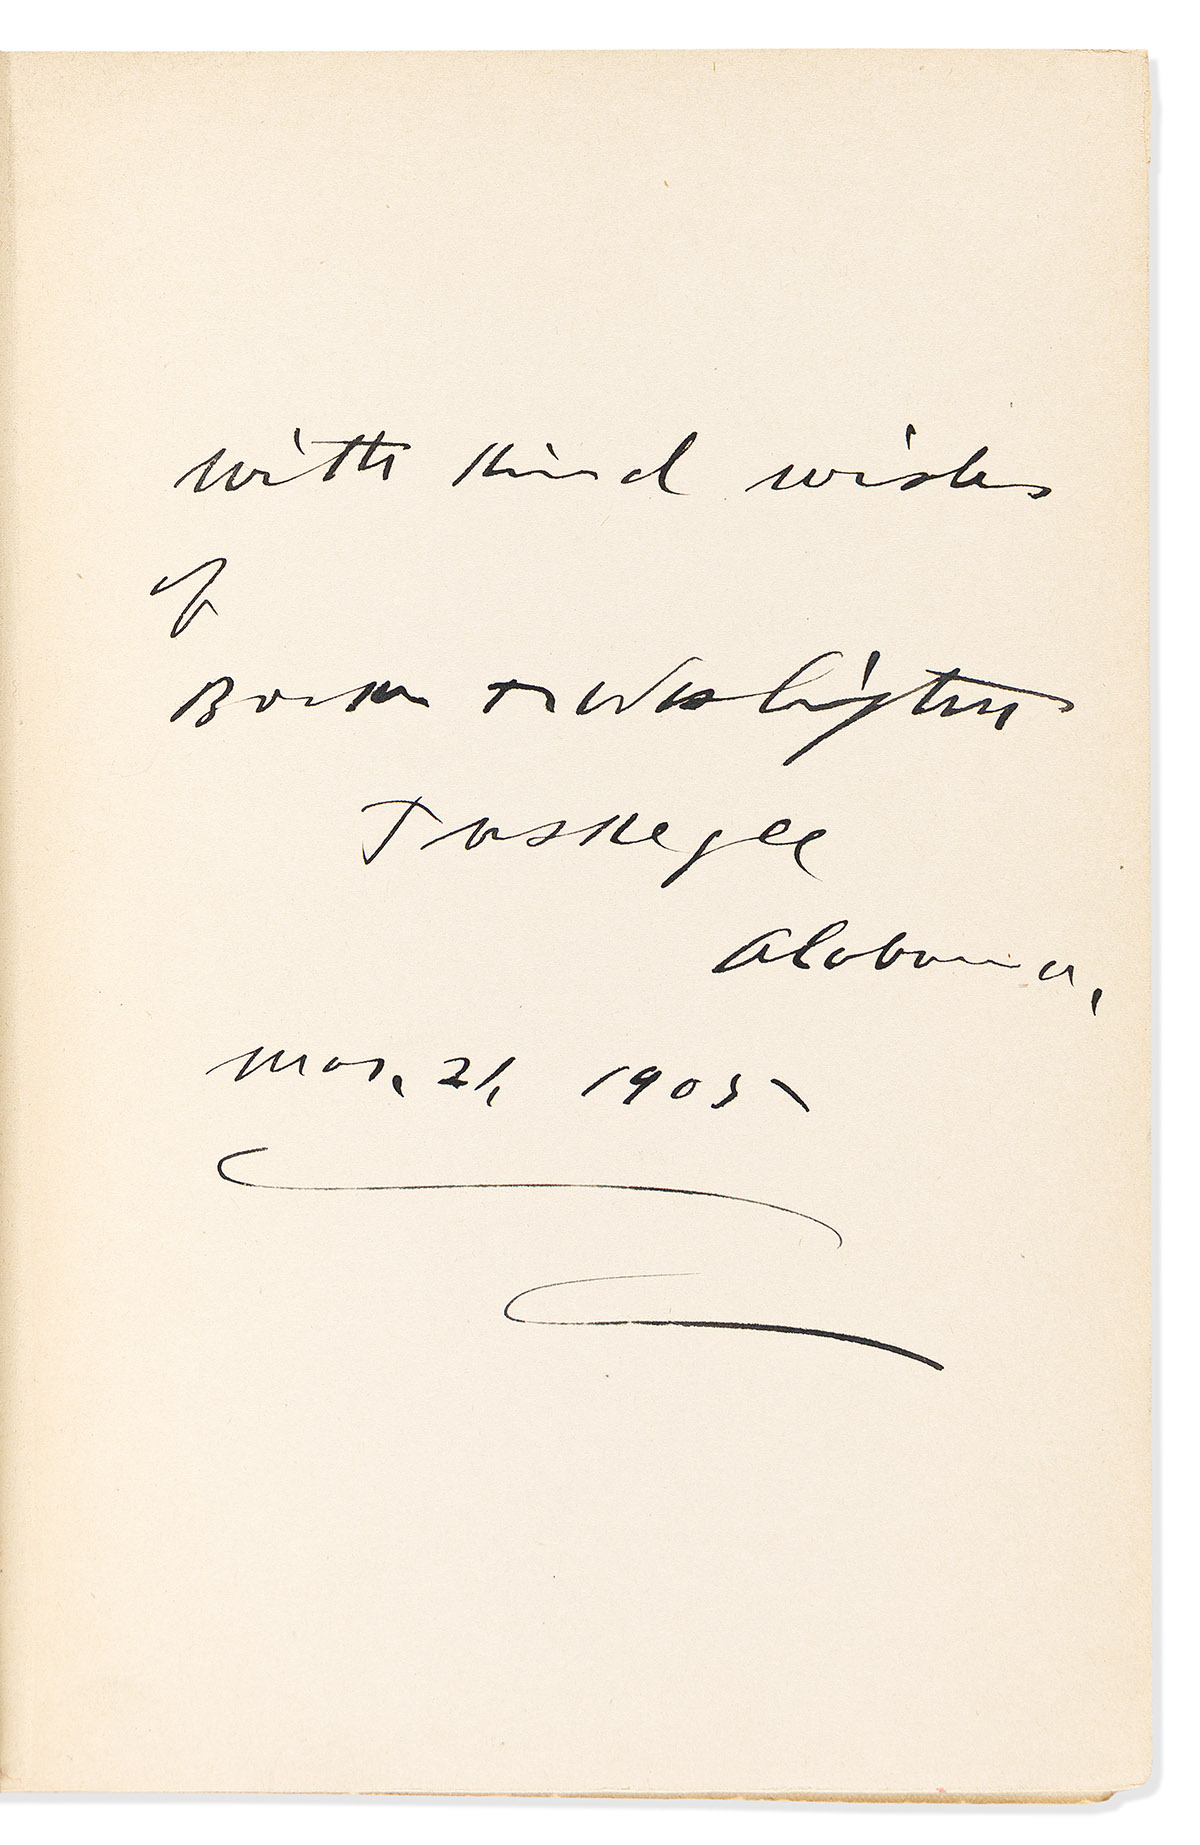 with kind wishes
of
Booker T. Washington
Tuskegee
Alabama,
Mar. 21, 1905